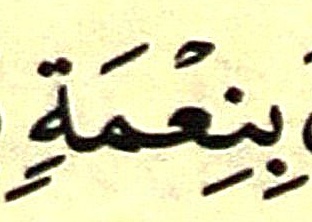 بِنِعْمَةِ